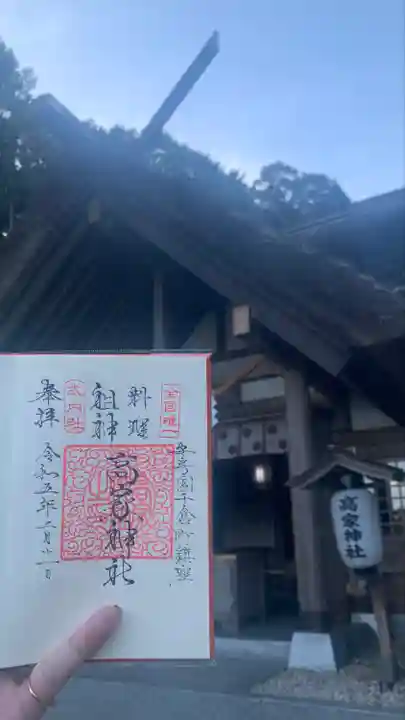 全国唯一
安房国千倉町鎮座
料理
祖神
高家神社
式内社
奉拝
令和五年二月十一日
高家神社